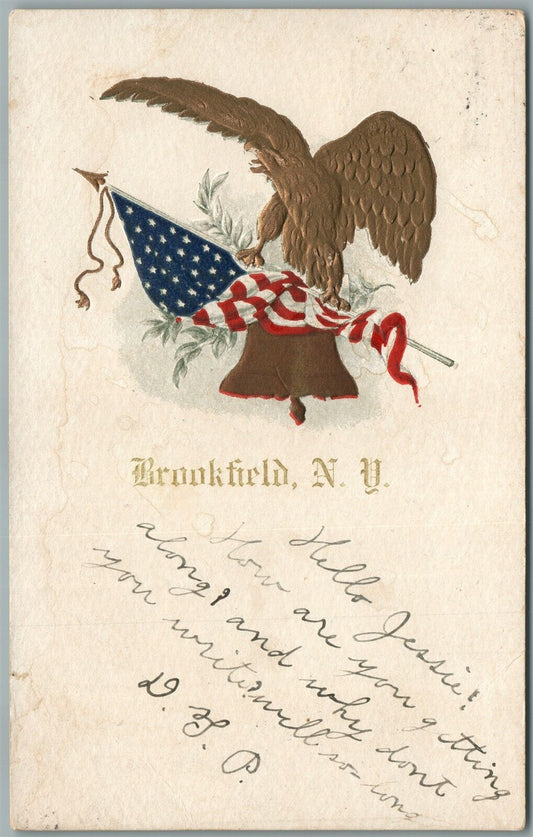 Brookfield, N. Y.
Hello Jessie!
How are you getting
along? and why dont
you write? will so-long
D. G. P.